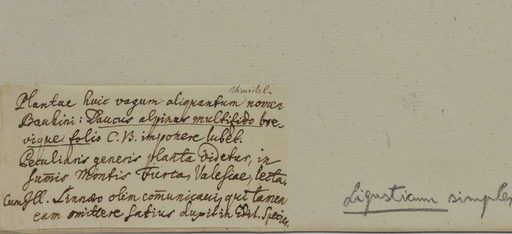 Schmidel.
Plantae huic vagum aliquantum nomen
Bauhini: Daucus alpinus multifido bre-
vique folio C. B. imponere lubet.
Peculiaris generis planta videtur, in
sumis Montis Furcae, Valesiae, lecta.
Cum Ill. Linnaeo olim com̄unicavi, qui tamen
eam omittere satius duxit in Edit. Specier.
Ligusticum simplex